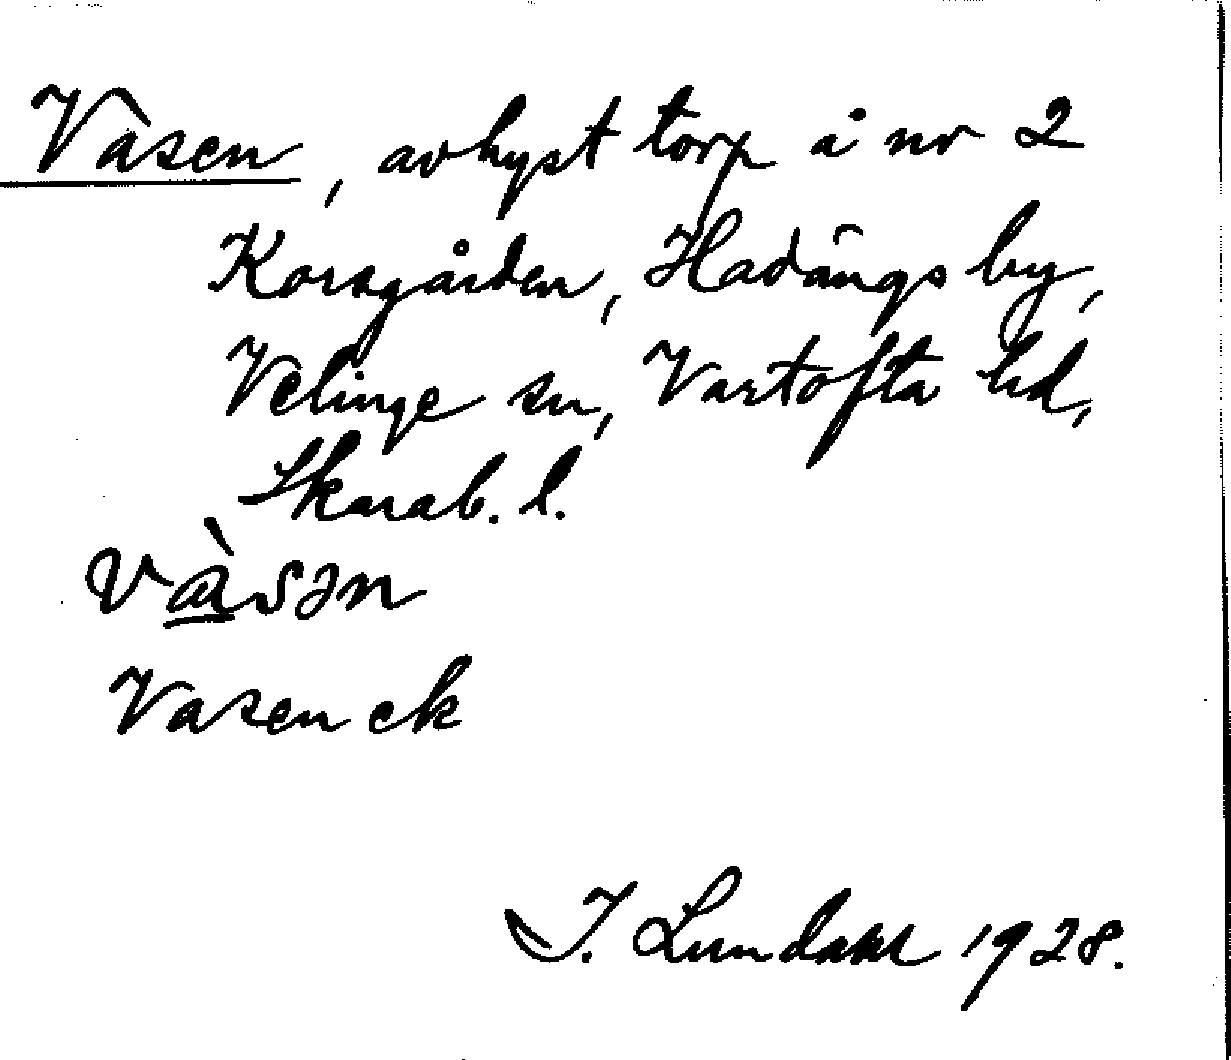 Våsen, avhyst torp å nr 2
Korsgården, Hadängs by,
Velinge sn, Vartofta hd,
Skarab. l.
vàsən
Vasen ek
I. Lundahl 1928.